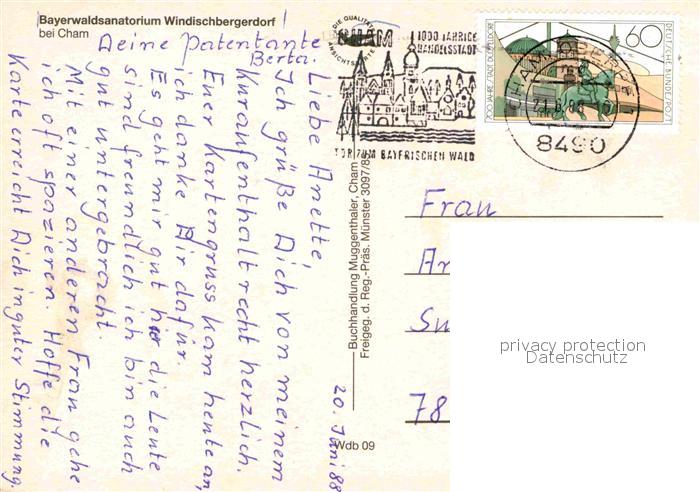 Bayerwaldsanatorium Windischbergerdorf
bei Cham
20. Juni 88
Liebe Anette,
Ich grüße Dich von meinem
Kuraufenthalt recht herzlich.
Euer Kartengruss kam heute an,
ich danke Dir dafür.
Es geht mir gut hier die Leute
sind freundlich ich bin auch
gut untergebracht.
Mit einer anderen Frau gehe
ich oft spazieren. Hoffe die
Karte erreicht Dich in guter Stimmung.
Deine Patentante
Berta.
Buchhandlung Muggenthaler, Cham
Freigeg. d. Reg.-Präs. Münster 3097/8
Wdb 09
DIE QUALITÄT
ANSICHTSKARTE
CHAM
1000 JÄHRIGE
HANDELSSTADT
TOR ZUM BAYRISCHEN WALD
CHAM, OBERPF
21.6.88
8490
700 JAHRE STADT DÜSSELDORF
60
DEUTSCHE BUNDESPOST
Frau
An
Su
78
privacy protection
Datenschutz